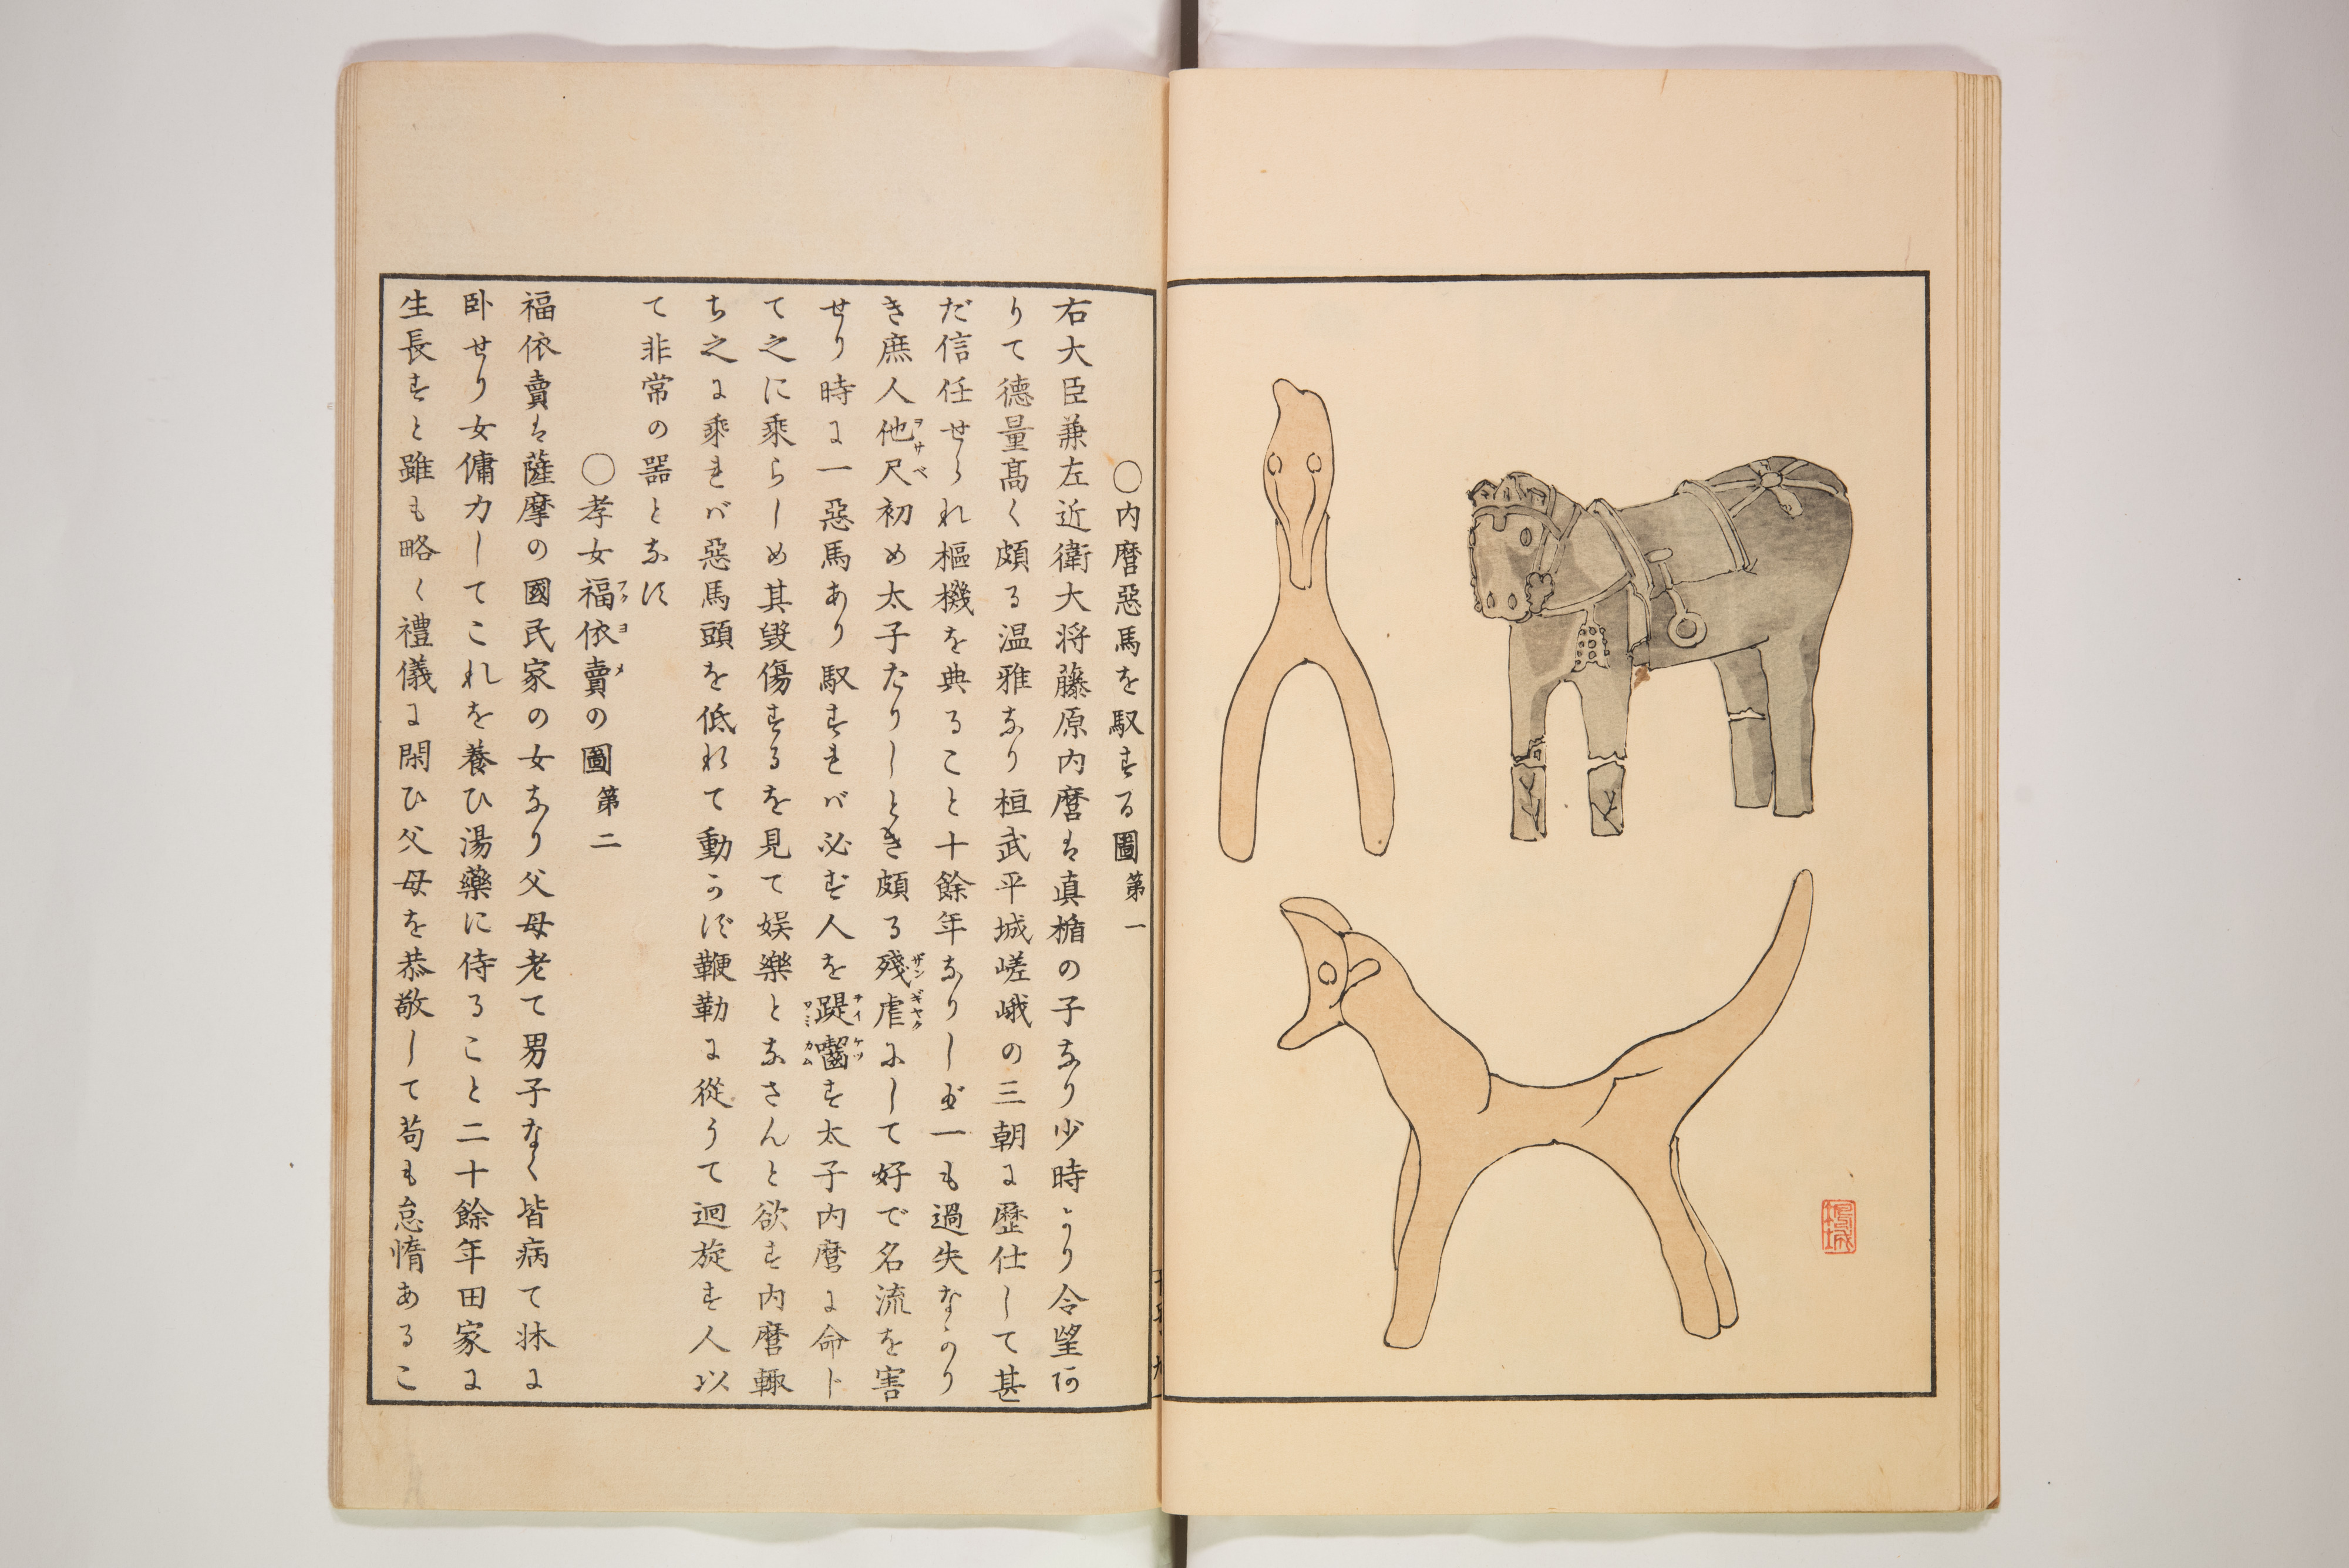 鳩城
○内麿惡馬を馭する圖第一
右大臣兼左近衛大将藤原内麿は真楯の子なり少時より令望あ
りて徳量髙く頗る温雅なり桓武平城嵯峨の三朝に歴仕して甚
だ信任せられ樞機を典ること十餘年なりしが一も過失なかり
き庶人他尺初め太子たりしとき頗る殘虐にして好で名流を害
ヲサベ
ザンギヤク
せり時に一惡馬あり馭すれバ必ず人を踶嚙す太子内麿に命じ
テイケツ
フミカム
て之に乘らしめ其毀傷するを見て娯樂となさんと欲す内麿輙
ち之に乘れバ惡馬頭を低れて動かず鞭勒に從うて迴旋す人以
て非常の器となす
○孝女福依賣の圖第二
フクヨメ
福依賣は薩摩の國民家の女なり父母老て男子なく皆病て牀に
卧せり女傭力してこれを養ひ湯藥に侍ること二十餘年田家に
生長すと雖も略く禮儀に閑ひ父母を恭敬して苟も怠惰あるこ